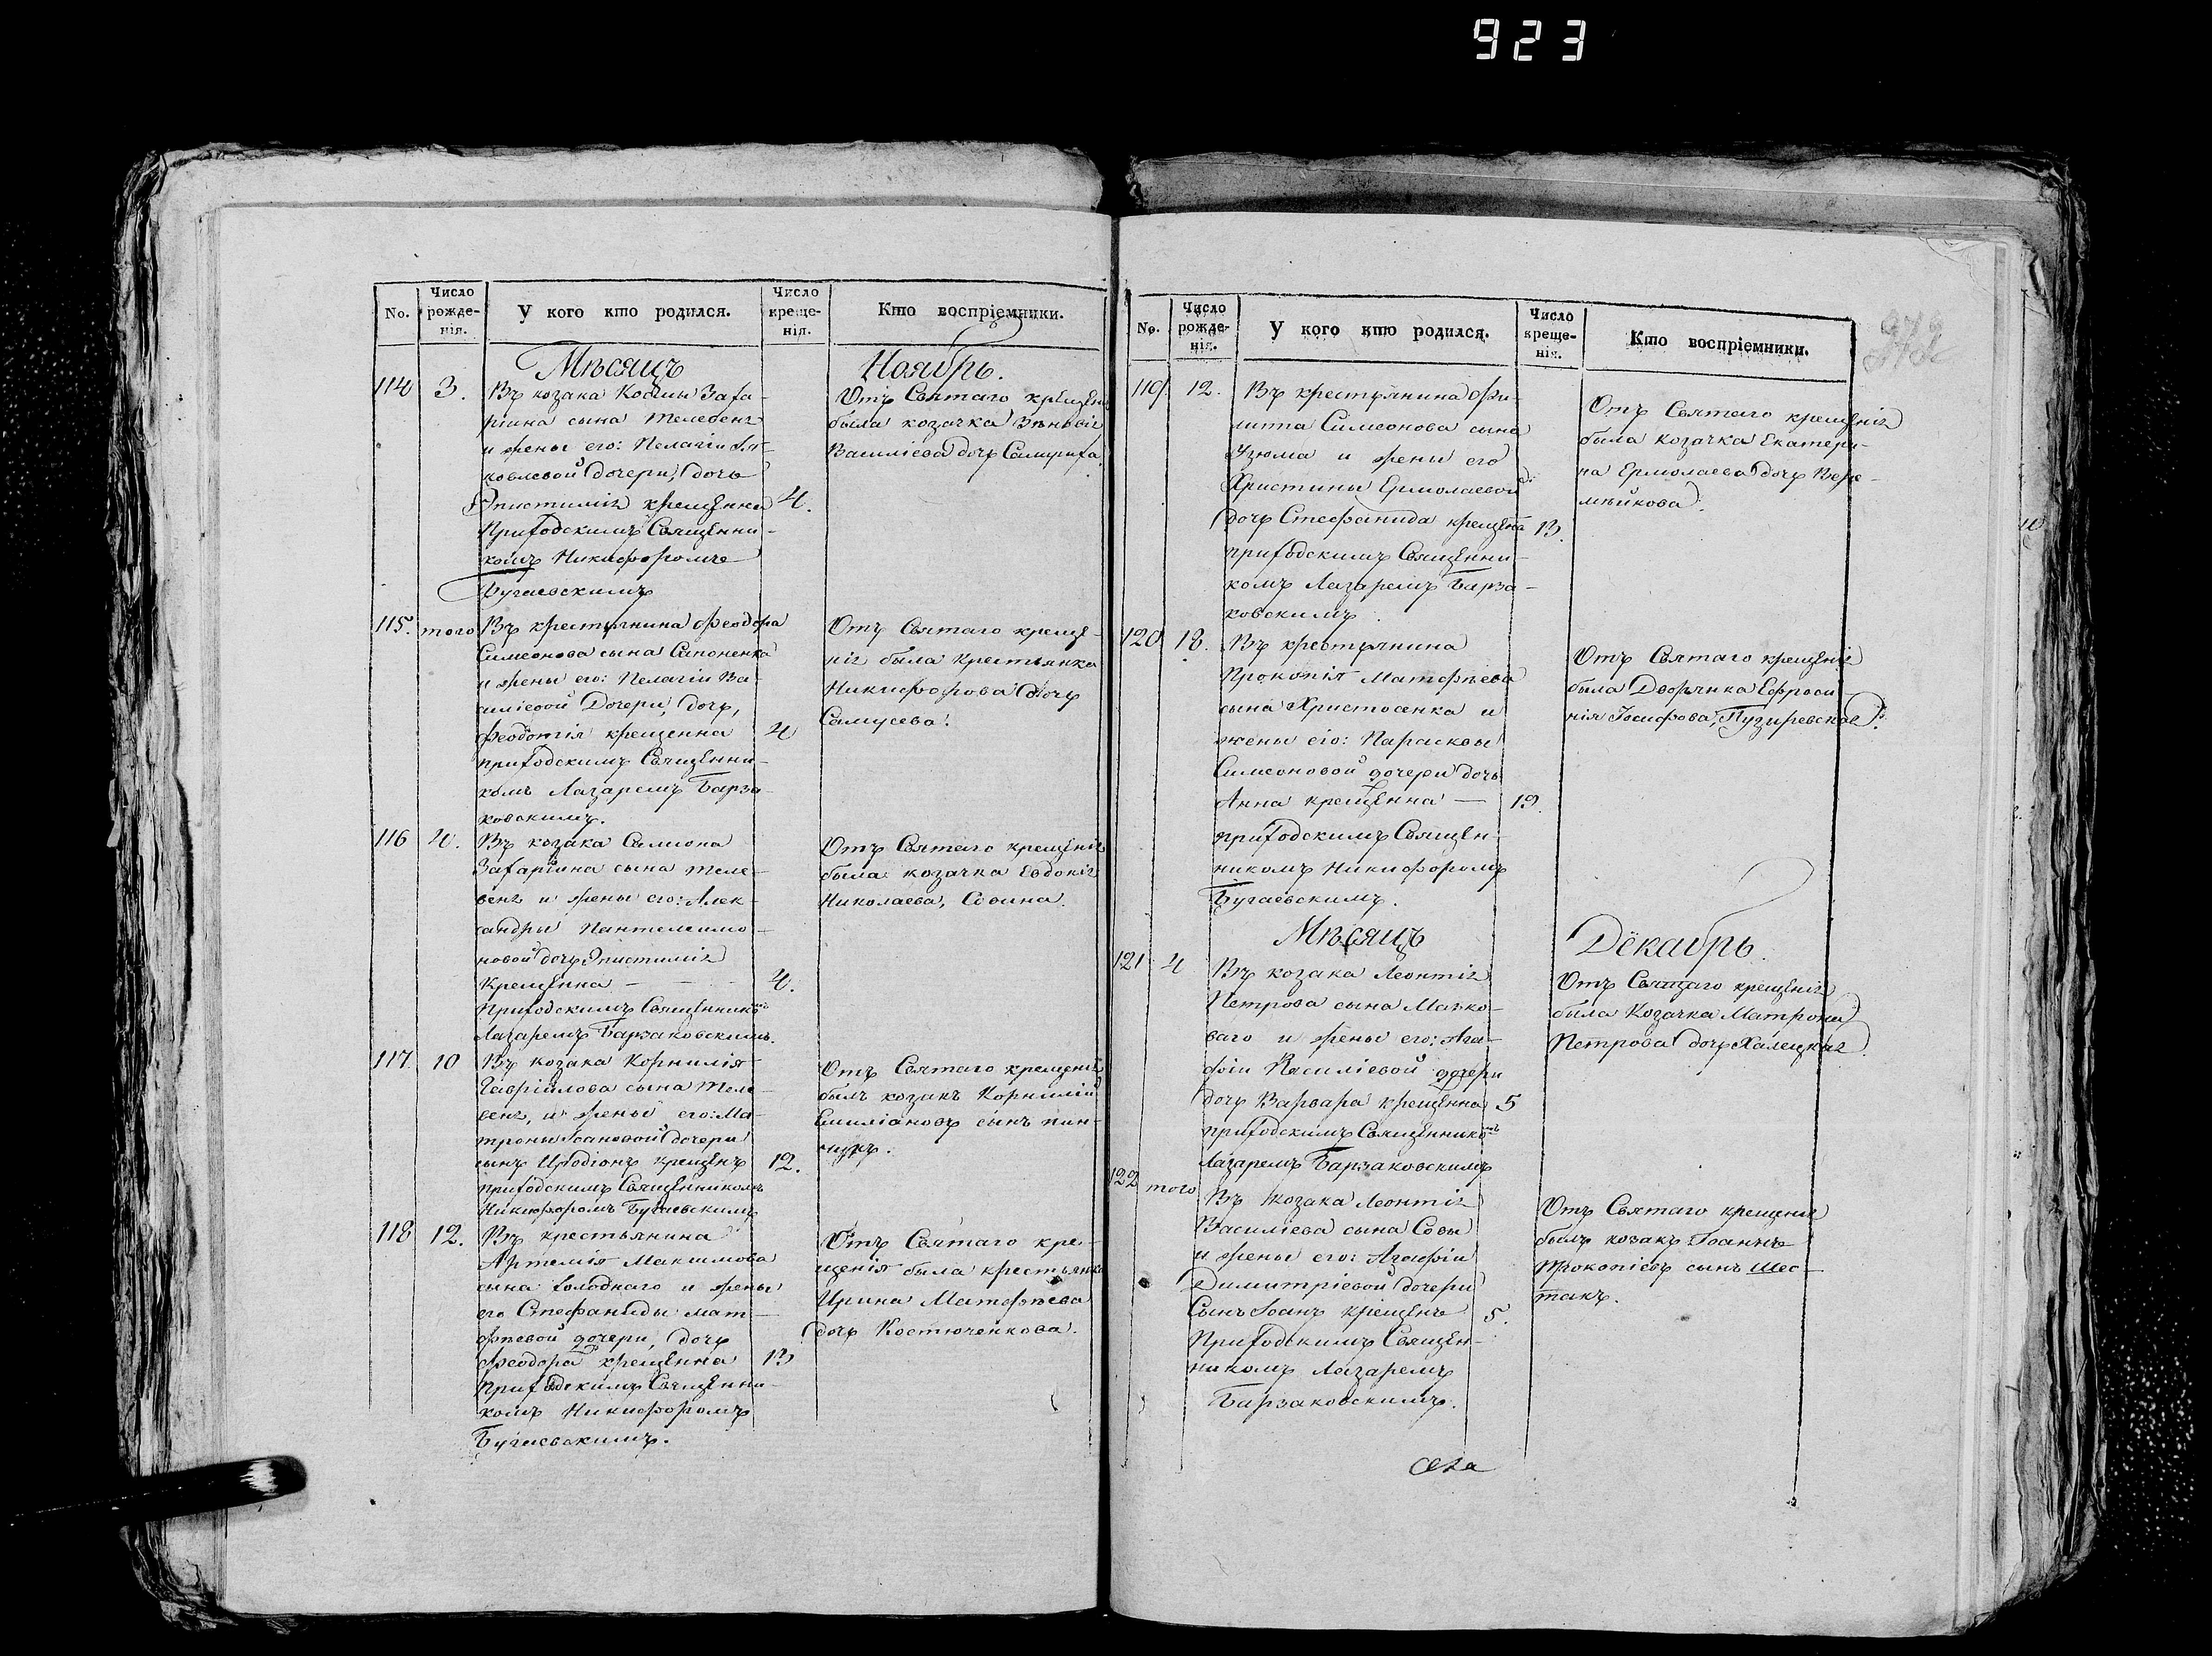 923
No.
Число рожде-нія.
У кого кто родился.
Число креще-нія.
Кто воспріемники.
Мѣсяцъ Ноябрь.
114 3. Въ козака Космы Заха-
ріина сына Телебенг
и жены его: Пелагіи Як-
ковлевой дочери, дочь
Эпистимія крещенна 4.
Приходскимъ Священни-
комъ Никифоромъ
Бугаевскимъ
Отъ Святаго крещен
была козачка Зѣновія
Василіева дочь
115. того Въ крестьянина Феодора
Симеонова сына Сапоненка
и жены его: Пелагіи Ва-
силіевой Дочери, дочь,
Феодотія крещенна 4
приходскимъ Священни-
комъ Лазаремъ Барза-
ковскимъ.
Отъ Святаго креще-
нія была крестьянка
Никифорова дочь
Самусева.
116 4. Въ козака Самиона
Захаріина сына Теле-
бенг и жены его: Алек-
сандры Пантелеимо-
новой дочь Эпистимія
Крещенна - - - 4.
Приходскимъ Священникомъ
Лазаремъ Барзаковскимъ.
Отъ Святаго крещенія
была козачка Евдокія
Николаева, Совина.
117. 10 Въ козака Корнилія
Гавріилова сына Теле-
бенг, и жены его: Ма-
троны Іоановой дочери
сынъ Иродіонъ крещенъ 12.
приходскимъ Священникомъ
Никифоромъ Бугаевскимъ
Отъ Святаго крещенія
былъ козакъ Корнилій
Емиліановъ сынъ пин-
чукъ.
118 12. Въ крестьянина
Артемія Максимова
сына Голоднаго и жены
его Стефаниды Мат-
фѣевой дочери, дочь
Феодора крещенна 13
Приходскимъ Священни-
комъ Никифоромъ
Бугаевскимъ.
Отъ Святаго кре-
щенія была крестьянка
Ирина Матфѣева
дочь Костюченкова.
No.
Число рожде-нія.
У кого кто родился.
Число креще-нія.
Кто воспріемники.
119. 12. Въ крестьянина Фи-
липпа Симеонова сына
Узюма и жены его
Христины Ермолаевой
дочь Стефанида крещена 13.
приходскимъ Священни-
комъ Лазаремъ Барза-
ковскимъ.
Отъ Святаго крещенія
была козачка Екатери-
на Ермолаева дочь Вере-
мѣйкова.
120 18. Въ крестьянина
Прокопія Матфѣева
сына Христосенка и
жены его: Парасковы
Симеоновой дочери дочь
Анна крещенна — 19.
приходскимъ Священ-
никомъ Никифоромъ
Бугаевскимъ.
Отъ Святаго крещенія
была Дворянка Ефроси
нія Іосифова, Пузыревская.
Мѣсяцъ Декабрь.
121 4 Въ козака Леонтія
Петрова сына Малко-
ваго и жены его: Ага-
фіи Василіевой дочери
дочь Варвара крещенна 5
приходскимъ Священникомъ
Лазаремъ Барзаковскимъ
Отъ Святаго крещенія
была Козачка Матрона
Петрова дочь Халецкая.
122 того Въ козака Леонтія
Василіева сына Совы
и жены его: Агафіи
Димитріевой дочери
Сынъ Іоанъ крещенъ 5.
Приходскимъ Священ-
никомъ Лазаремъ
Барзаковскимъ.
Отъ Святаго крещенія
былъ козакъ Іоаннъ
Прокопіевъ сынъ Шес-
такъ.